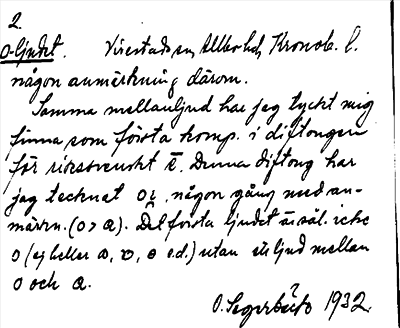 2
o-ljudet. Virestads sn, Allbo hd, Kronob. l.
någon anmärkning därom.
Samma mellanljud har jag tyckt mig
finna som första komp. i diftongen
för riksvenskt ē. Denna diftong har
jag tecknat oi, någon gång med an-
märkn. (o > a). Det första ljudet är säl. icke
o (ej heller a, ʋ, ɵ e.d.) utan ett ljud mellan
o och a.
O. 1932.